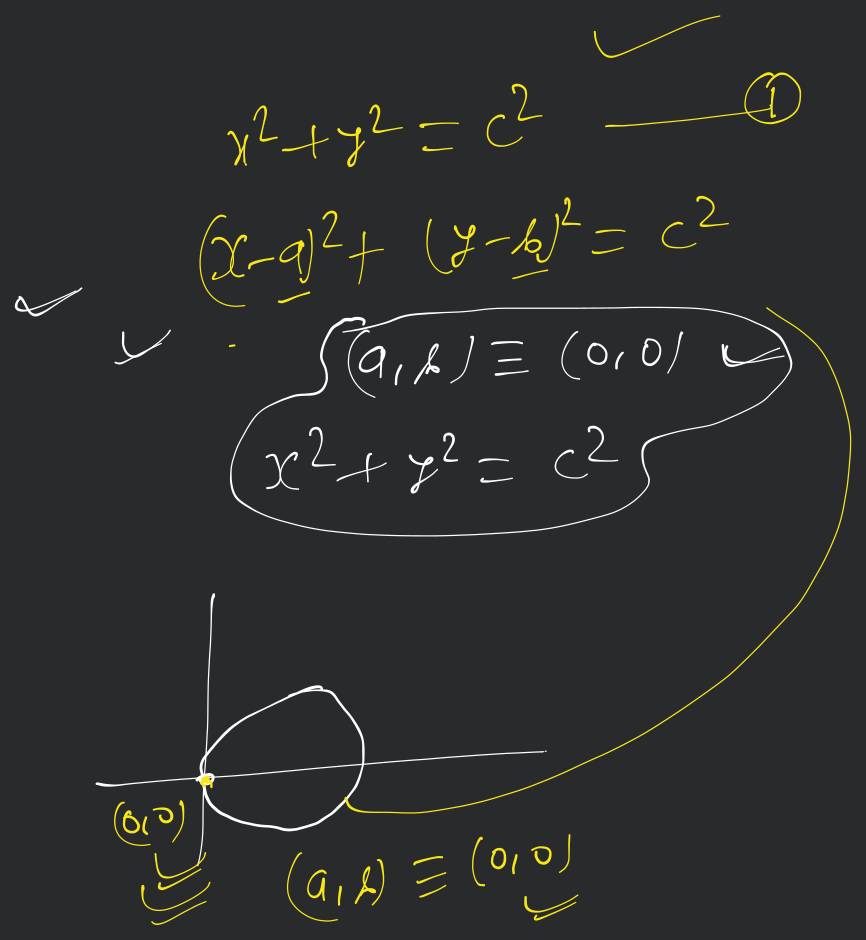 x² + y² = c² — ①
(x-a)² + (y-b)² = c²
(a, b) ≡ (0, 0)
x² + y² = c²
(0, 0)
(a, b) ≡ (0, 0)